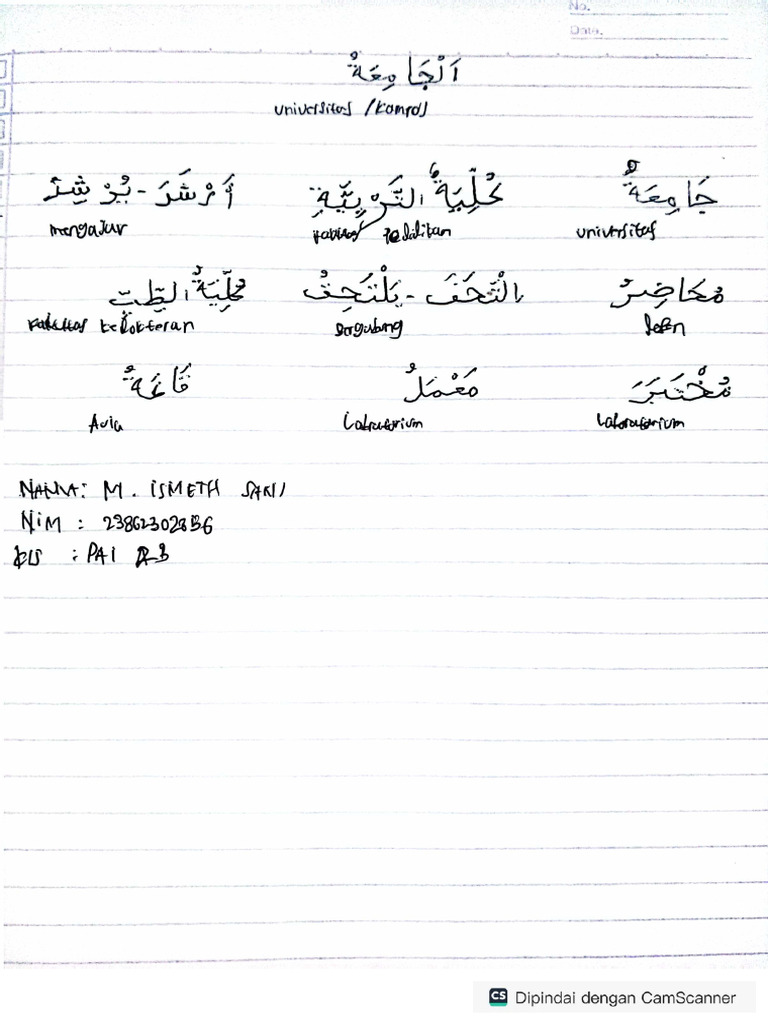 No.
Date.
اَلْجَامِعَةُ
universitas / kampus
جَامِعَةٌ كُلِّيَةُ التَّرْبِيَّةِ أَرْشَدَ - يُرْشِدُ
universitas Fakultas Pedidikan mengajar
مُحَاضِرٌ اِلْتَحَقَ - يَلْتَحِقُ كُلِّيَةُ الطِّبِّ
Dosen bergabung Fakultas kedokteran
مُخْتَبَرَ مَعْمَلُ قَاعَةٌ
Laboratorium Laboratorium Aula
NAMA: M. ISMETH SANI
NIM : 23862302856
KLS : PAI
CS Dipindai dengan CamScanner